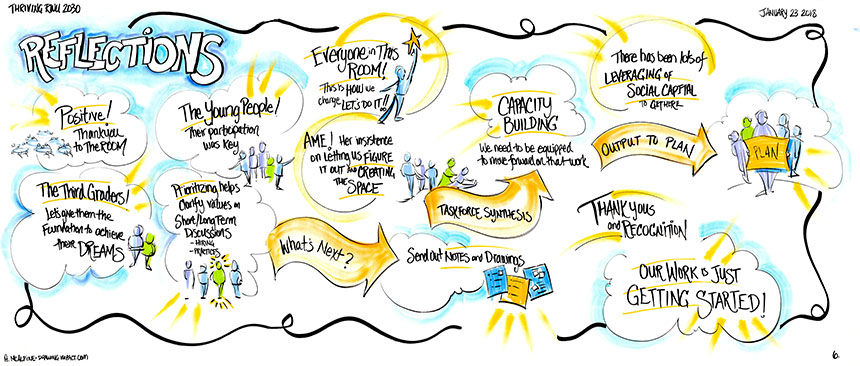 THRIVING RWU 2030
JANUARY 23 2018
REFLECTIONS
Positive!
Thank you
to THE ROOM
The Young People!
Their participation
was key
The Third Graders!
Let's give them the
Foundation to achieve
their DREAMS
Prioritizing helps
clarify values in
Short/Long Term
Discussions
- HIRING
Everyone in This
ROOM!
This is HOW we
change LET'S DO IT!!
AME! Her insistence
on Letting us FIGURE
IT OUT AND CREATING
THE SPACE
What's Next?
Send out NOTES and Drawings
TASKFORCE SYNTHESIS
CAPACITY
BUILDING
We need to be equipped
to move forward on that work
OUTPUT TO PLAN
There has been lots of
LEVERAGING of
SOCIAL CAPITAL
TO GET HERE
PLAN
THANK YOUS
and RECOGNITION
OUR WORK IS JUST
GETTING STARTED!
6.